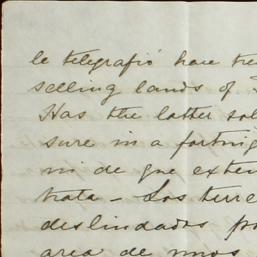 le telegrafió hace tre
selling lands of
Has the latter sol
sure in a fortnig
ni de que exten
trata - Los terre
deslindados po
area de unos